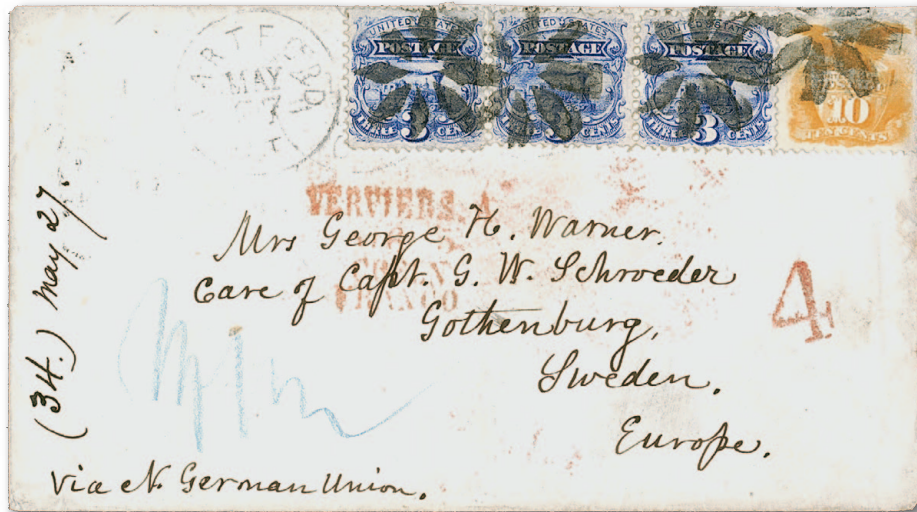 HARTFORD
MAY
UNITED STATES
POSTAGE
3
THREE CENTS
UNITED STATES
POSTAGE
3
THREE CENTS
UNITED STATES
POSTAGE
3
THREE CENTS
10
TEN CENTS
VERVIERS
FRANCO
Mrs George H. Warner.
Care of Capt. G. W. Schroeder
Gothenburg,
Sweden.
Europe.
4
(34.) May 27.
Via N. German Union.